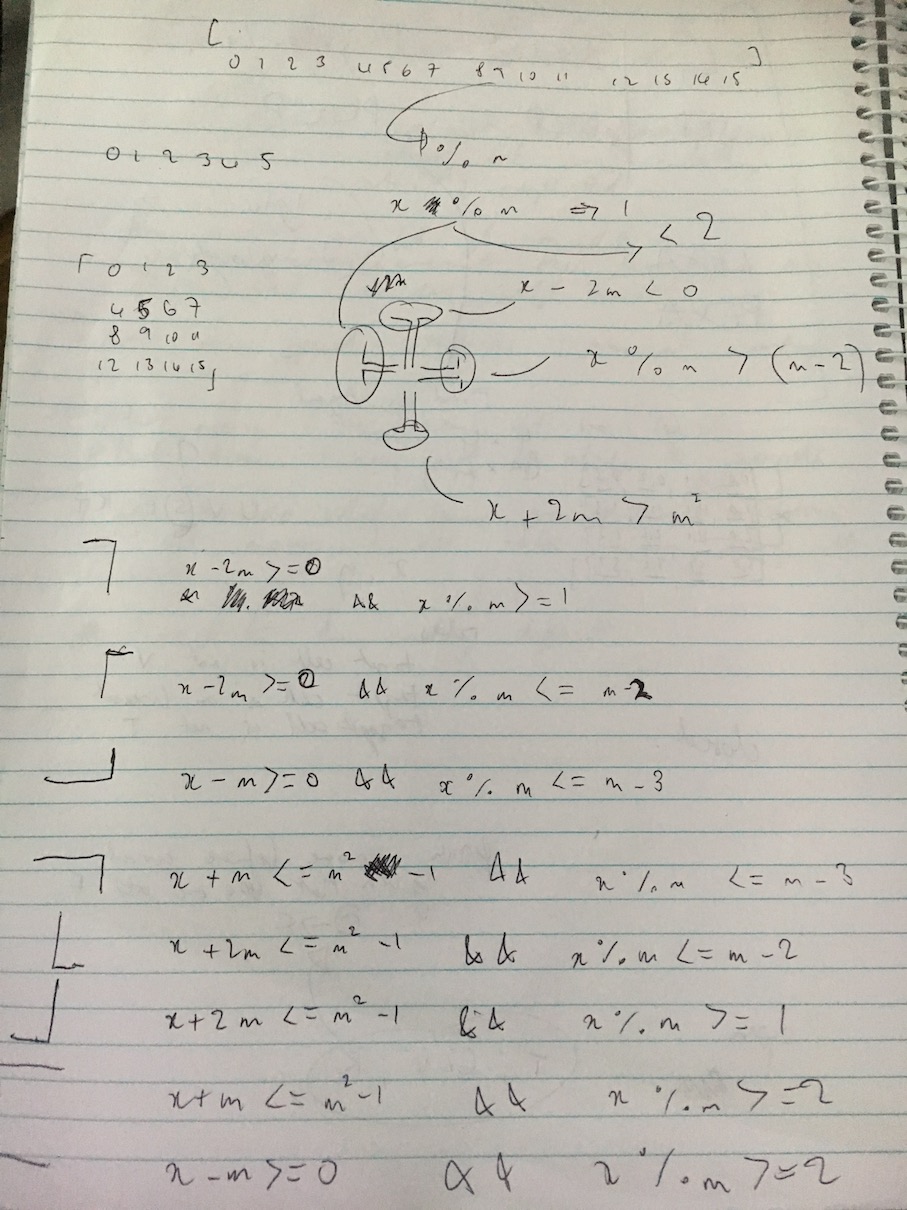 [ 0 1 2 3 4 5 6 7 8 9 10 11 12 13 14 15 ]
% n
0 1 2 3 4 5
x % n => 1
< 2
[ 0 1 2 3
x - 2m < 0
4 5 6 7
8 9 10 11
12 13 14 15 ]
x % n > (n-2)
x + 2m > m²
x - 2m >= 0
&& x % m >= 1
x - 2m >= 0 && x % m <= m-2
x - m >= 0 && x % m <= m - 3
x + m <= m² -1 && x % m <= m - 3
x + 2m <= m² -1 && x % m <= m - 2
x + 2m <= m² -1 && x % m >= 1
x + m <= m² -1 && x % m >= 2
x - m >= 0 && x % m >= 2